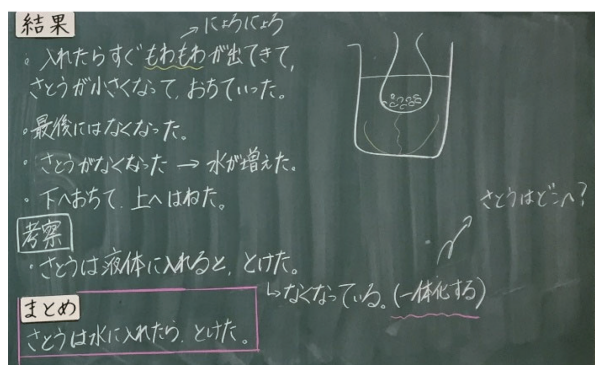 結果
→にょろにょろ
・入れたらすぐもわもわが出てきて,
さとうが小さくなって,おちていった。
・最後にはなくなった。
・さとうがなくなった → 水が増えた。
・下へおちて,上へはねた。
さとうはどこへ?
考察
・さとうは液体に入れると,とけた。
↳なくなっている。(一体化する)
まとめ
さとうは水に入れたら,とけた。